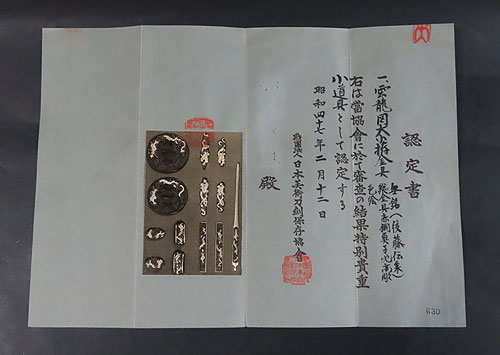 認定書
一、雲龍図大小揃金具
無銘(後藤伝来)
総金具赤銅魚子地高彫
色絵
右は當協會に於て審査の結果特別貴重
小道具として認定する
昭和四十七年二月十二日
財團法人日本美術刀劍保存協會
殿
630